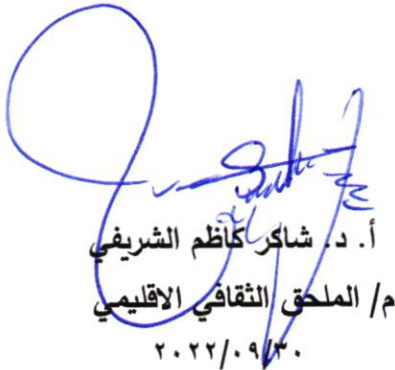 أ. د. شاكر كاظم الشريفي
م/ الملحق الثقافي الاقليمي
٢٠٢٢/٠٩/٣٠